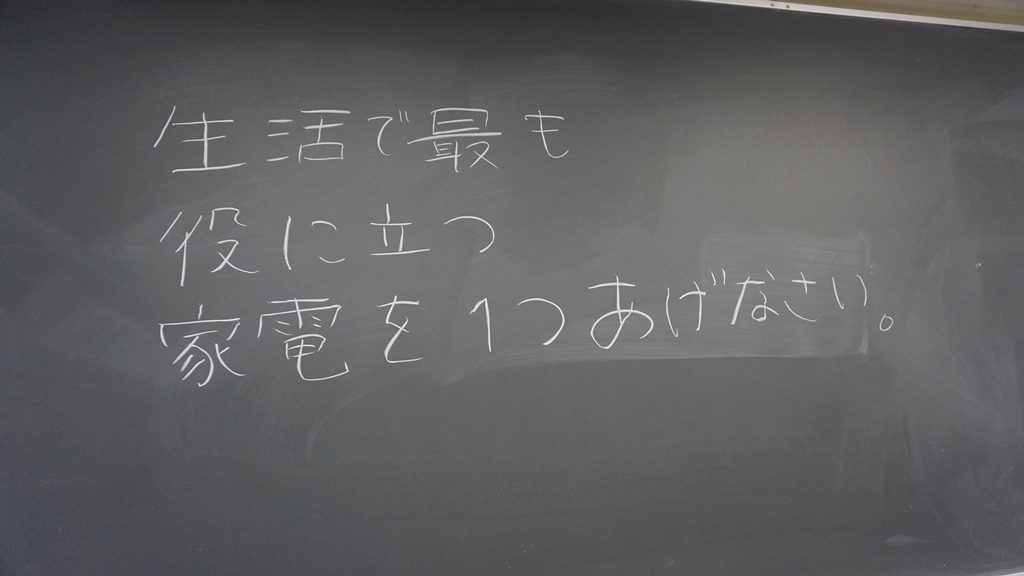 生活で最も
役に立つ
家電を1つあげなさい。